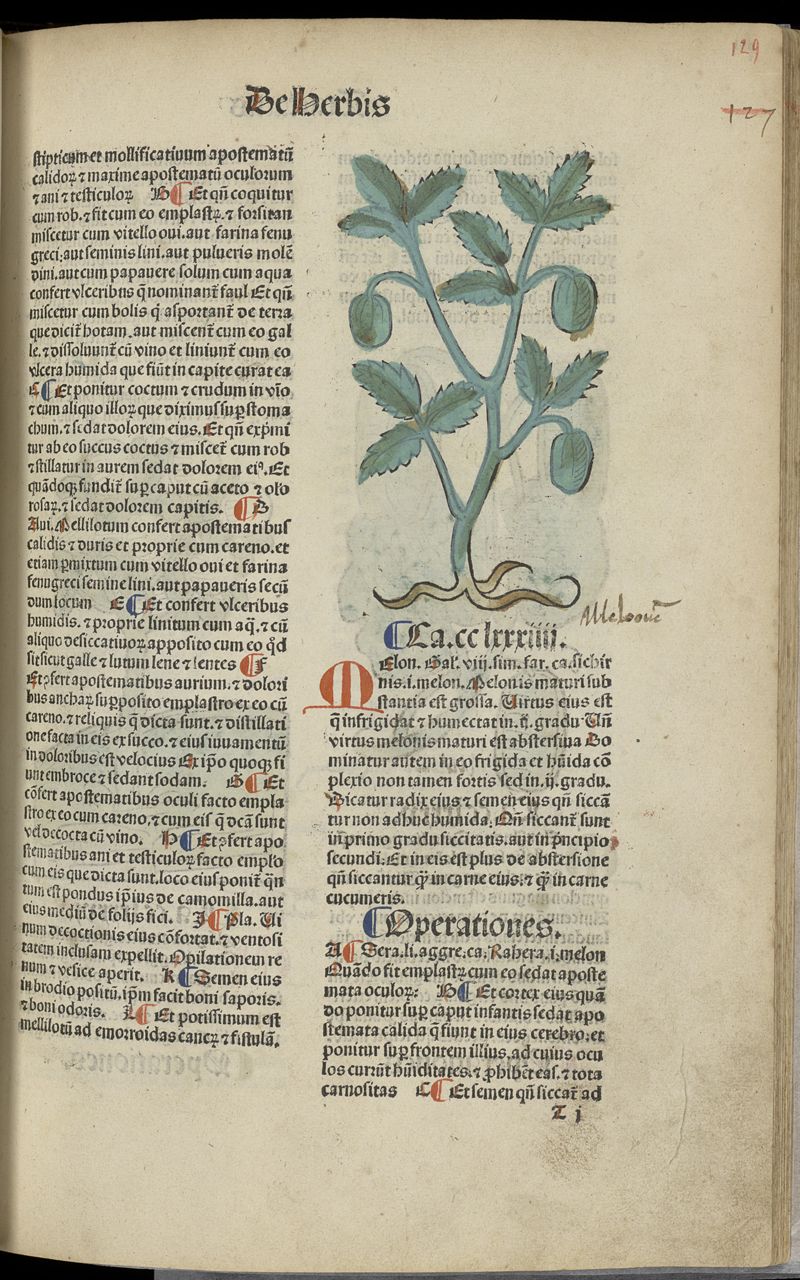 129
127
De Herbis
stipticum et mollificatiuum apostematū
calidoꝝ ⁊ maxime apostematū oculorum
⁊ ani ⁊ testiculoꝝ B ¶ Et qn̄ coquitur
cum rob. ⁊ fit cum eo emplastꝝ. ⁊ forsitan
miscetur cum vitello oui. aut farina fenu
greci: aut seminis lini. aut pulueris molē
dini. aut cum papauere solum cum aqua
confert vlceribus q̄ nominant̄ faul Et qn̄
miscetur cum bolis q̄ asportant̄ de terra
que dicit̄ hotam. aut miscent̄ cum eo gal
le. ⁊ dissoluunt̄ cū vino et liniunt̄ cum eo
vlcera humida que fiūt in capite curat ea
C ¶ Et ponitur coctum ⁊ crudum in vīo
⁊ cum aliquo illoꝝ que diximus sup̱ stoma
chum. ⁊ sedat dolorem eius. Et qn̄ exp̱mi
tur ab eo succus coctus ⁊ miscet̄ cum rob
⁊ stillatur in aurem sedat dolorem eiꝰ. Et
quādoqꝫ fundit̄ sup̱ caput cū aceto ⁊ oleo
rosaꝝ. ⁊ sedat dolorem capitis. ¶ D
Aui. Mellilotum confert apostematibus
calidis ⁊ duris et proprie cum careno. et
etiam p̱mixtum cum vitello oui et farina
fenugreci semine lini. aut papaueris secū
dum locum E ¶ Et confert vlceribus
humidis. ⁊ proprie linitum cum aq̄. ⁊ cū
aliquo desiccatiuoꝝ apposito cum eo q̄d
sit sicut galle ⁊ lutum lene ⁊ lentes ¶ F
Et ꝯfert apostematibus aurium. ⁊ dolori
bus anchaꝝ supposito emplastro ex eo cū
careno. ⁊ reliquis q̄ dicta sunt. ⁊ distillati
one facta in eis ex succo. ⁊ eius iuuamentū
in doloribus est velocius Ex ip̄o quoqꝫ fi
unt embroce ⁊ sedant sodam. G ¶ Et
cōfert apostematibus oculi facto empla
stro ex eo cum careno. ⁊ cum eis q̄ dc̄a sunt
vel decocta cū vino. H ¶ Et ꝯfert apo
stematibus ani et testiculoꝝ facto emplō
cum eis que dicta sunt. loco eius ponit̄ qn̄
tum est pondus ip̄ius de camomilla. aut
eius mediū de folijs fici. I ¶ Pla. Vi
num decoctionis eius cōfortat. ⁊ ventosi
tatem inclusam expellit. Opilationem re
num ⁊ vesice aperit. K ¶ Semen eius
in brodio positū. ip̄m facit boni saporis.
⁊ boni odoris. L ¶ Et potissimum est
mellilotū ad emorroidas cancꝝ ⁊ fistulā.
Melone
¶ Ca. cc lxxxiiij.
MElon. Gal'. viij. sim. far. ca. sichir
nis. i. melon. Melonis maturi sub
stantia est grossa. Virtus eius est
q̄ infrigidat ⁊ humectat in. ij. gradu Vn̄
virtus melonis maturi est abstersiua Do
minatur autem in eo frigida et hūida cō
plexio non tamen fortis sed in. ij. gradu.
Dicatur radix eius ⁊ semen eius qn̄ siccā
tur non adhuc humida. Qn̄ siccant̄ sunt
in primo gradu siccitatis. aut in p̄ncipio
secundi. Et in eis est plus de abstersione
qn̄ siccantur q̄ꝫ in carne eius: ⁊ q̄ꝫ in carne
cucumeris.
¶ Operationes.
A ¶ Sera. li. aggre. ca. Kahera. i. melon
Quādo fit emplastꝝ cum eo sedat aposte
mata oculoꝝ. B ¶ Et cortex eius quā
do ponitur sup̱ caput infantis sedat apo
stemata calida q̄ fiunt in eius cerebro: et
ponitur sup̱ frontem illius, ad cuius ocu
los currūt hūiditates. ⁊ ꝓhibēt eas. ⁊ tota
carnositas C ¶ Et semen qn̄ siccat̄ ad
T j